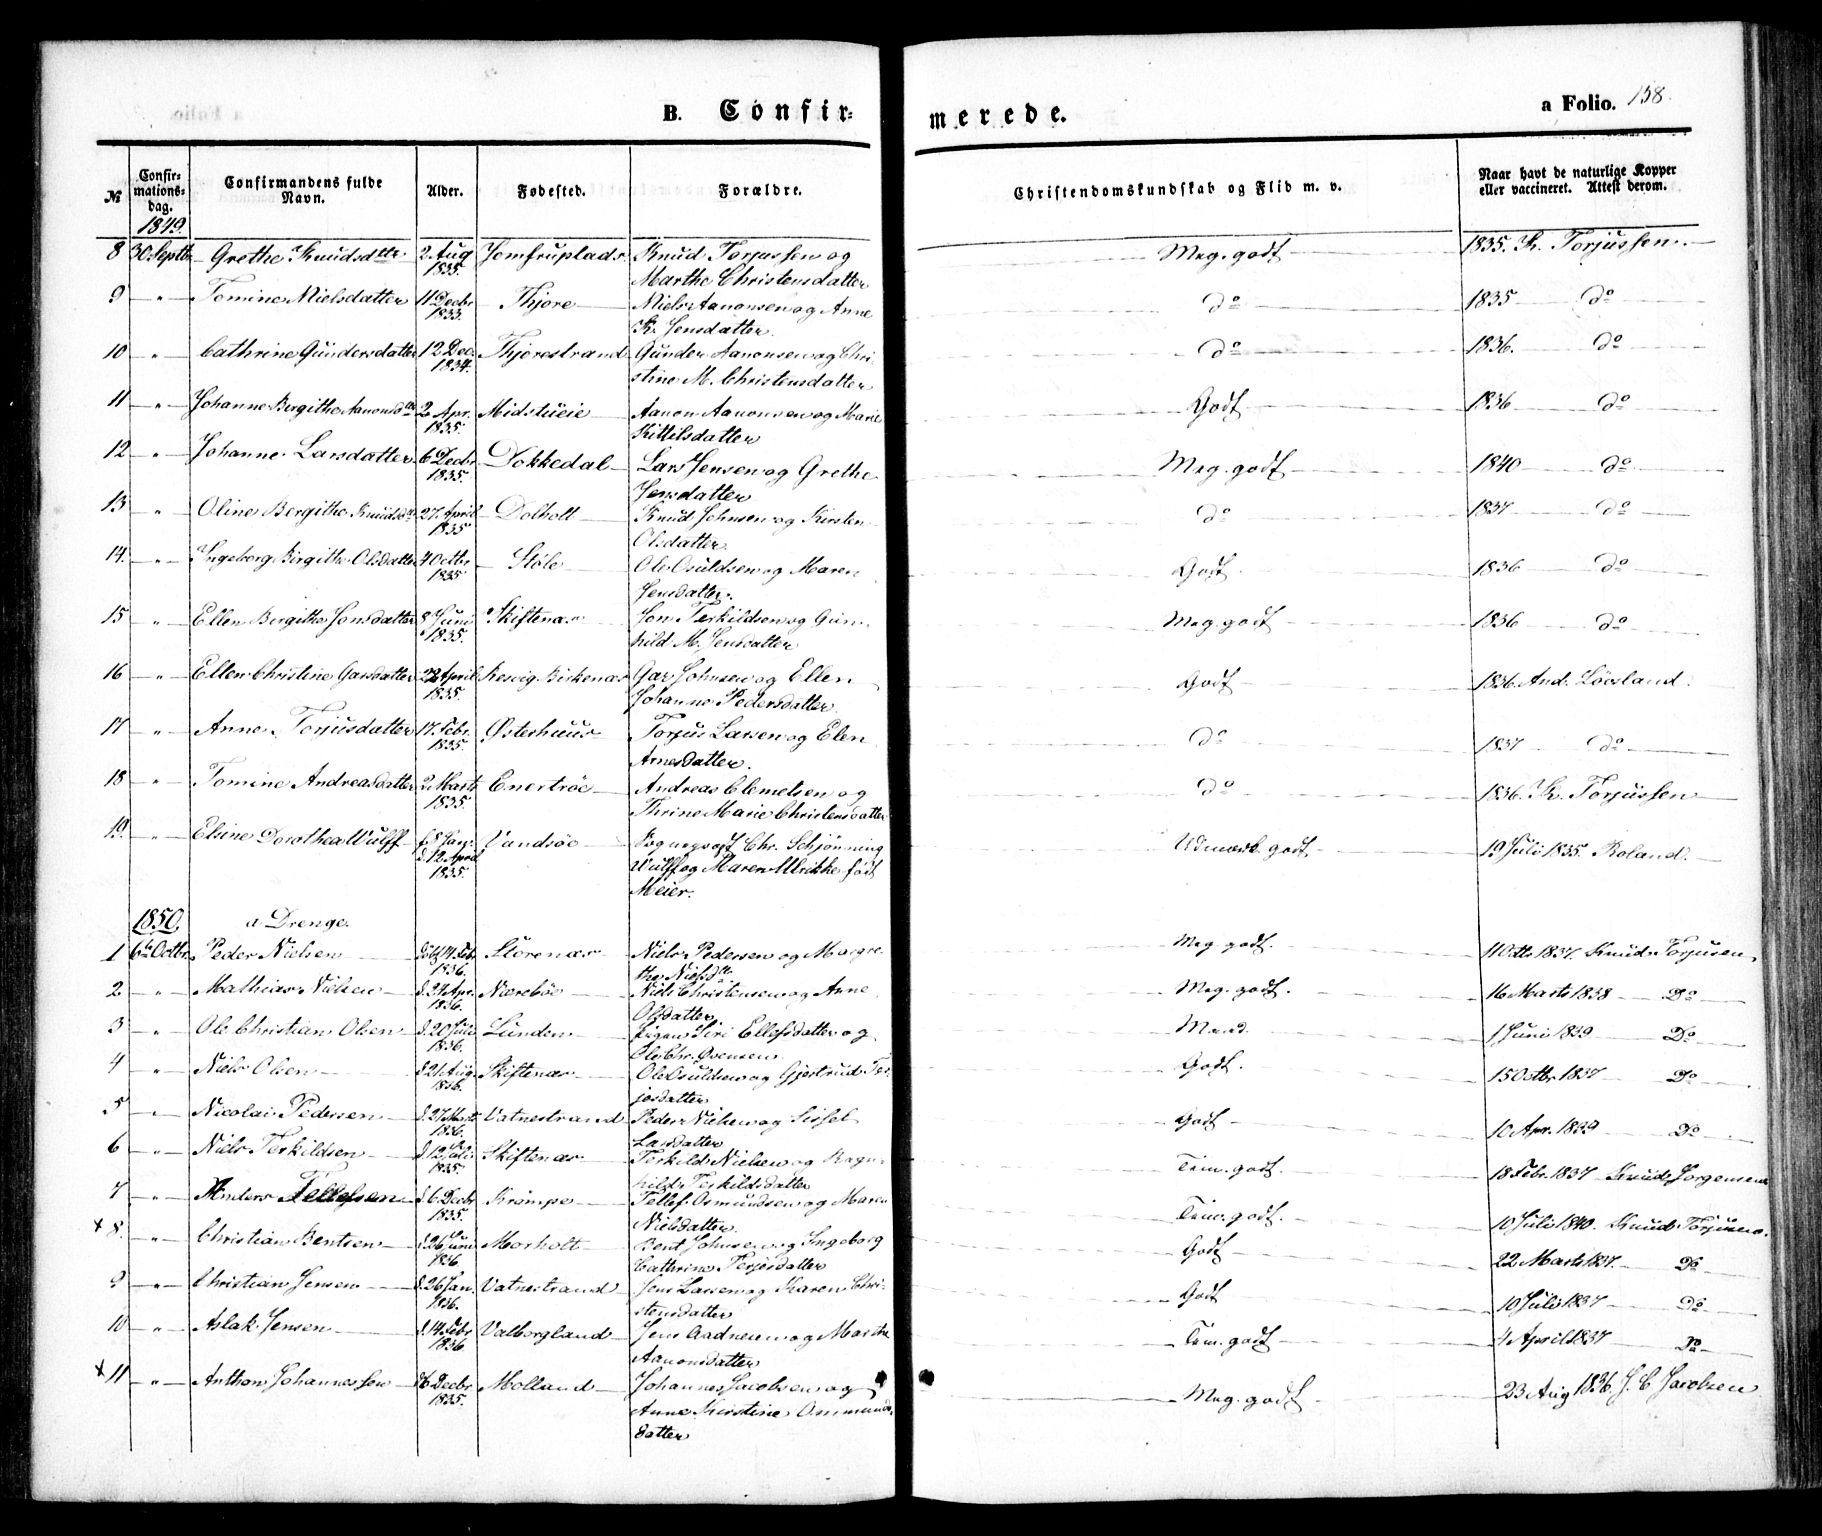 B. Confirmerede.
a Folio. 158.
№ Confirmationsdag. Confirmandens fulde Navn. Alder. Fødested. Forældre. Christendomskundskab og Flid m. v. Naar havt de naturlige Kopper eller vaccineret. Attest derom.
1849.
8 30 Septb. Grethe Knudsdttr. 2 Aug 1835. Jomfruplads Knud Torjussen og Marthe Christensdatter Meg. godt 1835. K. Torjussen.
9 " Tomine Nielsdatter 11 Decbr 1833. Thjore Niels Aanonsen og Anne K. Jensdatter. do 1835 do
10 " Cathrine Gundersdatter 12 Dec. 1834. Thjorestrand Gunder Aanonsen og Christine M. Christensdatter do 1836. do
11 " Johanne Bergithe Aanonsdttr 2 Apr. 1835. Midstueie Aanon Aanonsen og Marie Kittilsdatter Godt 1836 do
12 " Johanne Larsdatter 6 Decbr 1835. Dokkedal Lars Jensen og Grethe Jensdatter Meg. godt 1840 do
13 " Oline Bergithe Knudsdtr 27 April 1835 Dolholt Knud Johnsen og Kirsten Olsdatter do 1837 do
14. " Ingeborg Birgithe Olsdatter 4 Octbr 1835 Støle Ole Osuldsen og Maren Jensdatter. Godt 1836 do
15 " Ellen Bergithe Jonsdatter 8 Juni 1835. Skiftenæs Jon Terkildsen og Gunhild M. Jensdatter Meg. godt 1836 do
16 " Ellen Christine Garsdatter 22 April 1835. Resvig Birkenæs Gar Johnsen og Ellen Johanne Pedersdatter. Godt 1836. And. Løvsland.
17 " Anne Torjusdatter 17 Febr. 1835. Østerhuus Torjus Larsen og Elen Arnesdatter. do 1837 do
18 " Tomine Andreasdatter 2 Marts 1835. Enertrøe Andreas Clemetsen og Thrine Marie Christensdatter do 1836. K. Torjussen
19. " Elsine Dorothea Wulff f. 8 Jan. d. 12 April 1835. Vandsøe Chr. Schjønning Wulff og Maren Ulrikke født Meier. Udmærk. godt 19 Juli 1835. Roland.
1850. a Drenge.
1 6te Octbr. Peder Nielsen 14 Feb. 1836. Storenæs Niels Pedersen og Margrethe Nielsdtr Meg. godt. 11 Octb 1837. Knud Torjusen
2 " Mathias Nielsen d. 27 Apr. 1836. Nærebøe Niels Christensen og Anne Olsdatter Meg. godt. 16 Marts 1838 Do
3 " Ole Christian Olsen d. 20 Juli 1836. Lunden Pigen Siri Ellefsdatter og Ole Chr. Svensen 1 Juni 1839 Do
4 " Niels Olsen d. 21 Aug. 1836. Skiftenæs Ole Osuldsen og Gjertrud Terjesdatter Godt. 15 Octbr. 1837 Do
5 " Nicolai Pedersen d. 27 Marts 1836. Vatnestrand Peder Nielsen og Sissel Larsdatter Godt 10 Apr. 1839 Do
6 " Niels Terkildsen d. 12 Juli 1835. Skiftenæs Terkild Nielsen og Ragnhild Terkildsdatter Tem. godt. 18 Febr. 1837 Knud Jørgensen
7 " Anders Tellefsen d. 6 Decbr 1835. Krømpe Tellef Osmundsen og Maren Nielsdatter Tem. godt. 10 Juli 1840. Knud Torjusen.
x 8. " Christian Bentsen d. 26 Juni 1836 Morholt Bent Johnsen og Ingeborg Cathrine Terjesdatter Godt 22 Marts 1837. Do
9 " Christian Jensen d. 26 Jan. 1836. Vatnestrand Jens Larsen og Karen Christensdatter Godt 10 Juli 1837 Do
10 " Aslak Jensen d. 14 Febr 1836 Valborgland Jens Aadnesen og Marthe Aanonsdatter Tem. godt 4 April 1837 Do
x 11 " Anthon Johannessen 6 Decbr 1835. Molland Johannes Jacobsen og Anne Kirstine Ommundsdatter Meg. godt 23 Aug 1836. J. C. Jacobsen